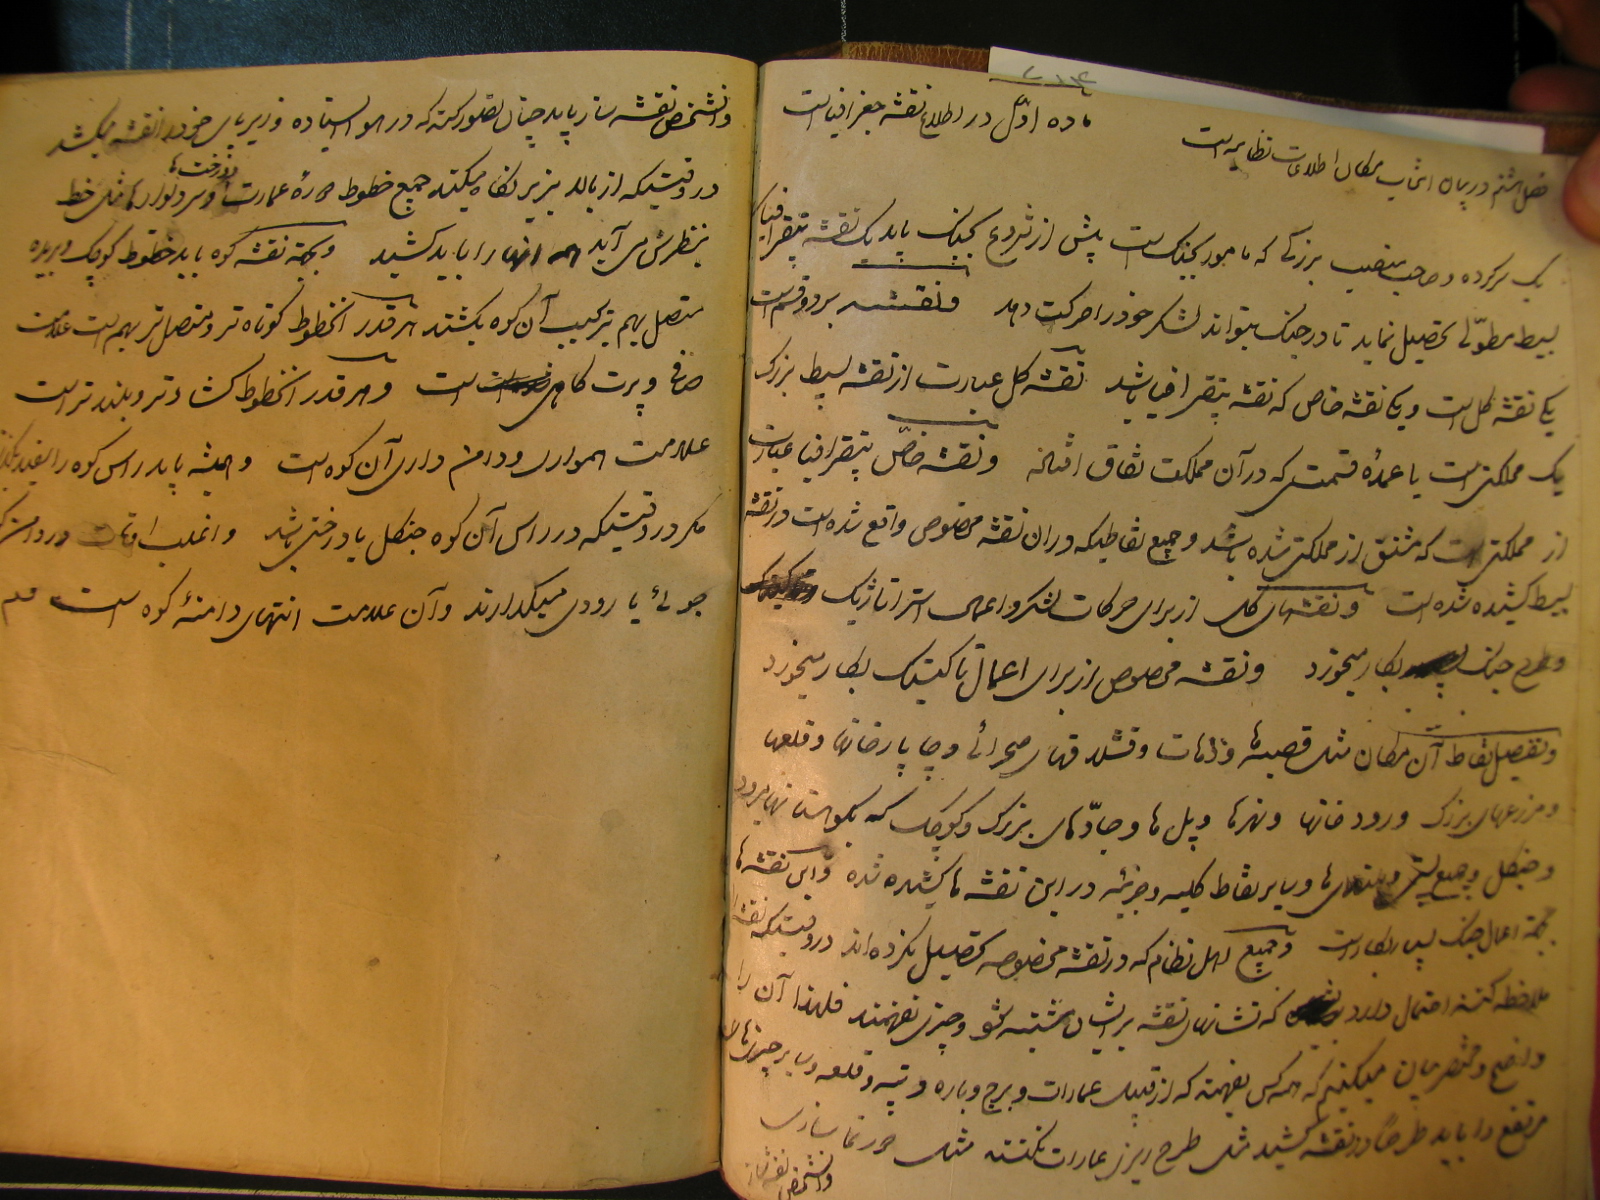 ماده اوّل در اطلاع نقشه جغرافیا است
فصل هشتم در بیان انتخاب مکان اطلاعات نظامیه است
یک سرکرده و صاحب منصب بزرگی که مامور بجنگ است پیش از شروع بجنگ باید یک نقشه
بسیط مطوّلی تحصیل نماید تا در جنگ بتواند لشکر خود را حرکت دهد و نقشه بر دو قسم است
یکی نقشه کل است و یکی نقشه خاص که نقشه باشد نقشه کل عبارت از نقشه بسیط بزرگ
یک مملکتی است یا عمدهٔ قسمت که در آن مملکت نفاق افتاده و نقشه خاصّ عبارت
از مملکتی است که مشتق از مملکتی شده باشد و جمیع نقاطیکه در ان نقشه مخصوص واقع شده است در نقشه
بسیط کشیده شده است و نقشهای کلی از برای حرکات لشکر و اعمال استراتاژیک
و طرح جنگ بکار میخورد و نقشه مخصوص از برای اعمال تاکتیک بکار میخورد
و تفصیل نقاط آن مکان مثل قصبه ها و دهات و قشلاقهای صحرائی و چاپارخانها و قلعها
و مزرعهای بزرگ و رودخانها و نهرها و پل ها و جادّهای بزرگ و کوچک که بکوهستانها میرود
و جنگل و جمیع پستی و بلندی ها و سایر نقاط کلیه و جزئیه در این نقشه ها کشیده شده و این نقشه ها
بجهة اعمال جنگ بسیار بکار است و جمیع اهل نظام که در نقشه مخصوصه تحصیل نکرده اند در وقتیکه نقشه را
ملاحظه کنند احتمال دارد که نشانهای نقشه بر ایشان مشتبه شود و چیزی نفهمند فلهذا آن را
واضح و مختصر بیان میکنم که همه کس بفهمد که از قبیل عمارات و برج و باره و تپه و قلعه و سایر چیزهای
مرتفع را باید طرحاً در نقشه کشید مثل طرح ریزی عمارات نکتته مثل خورنما سازی
و آنشخص نقشه ساز
و آنشخص نقشه ساز باید چنان تصور کند که در هوا ایستاده و زیر پای خود را نقشه میکشد
در وقتیکه از بالا بزیر نگاه میکند جمیع خطوط دورهٔ عمارت و سر دیوارها مثل خط
و درخت ها
بنظرش می آید همه انها را باید کشید و بجهة نقشه کوه باید خطوط کوچک و بریده
متصل بهم بترکیب آن کوه بکشند هر قدر انخطوط کوتاه تر و متصل تر بهم است علامت
صافی و پرت گاهی است و هر قدر انخطوط گشادتر و بلندتر است
علامت همواری و دامن داری آن کوه است و همیشه باید راس کوه را سفید بگذارند
مگر در وقتیکه در راس آن کوه جنگل یا درختی باشد و اغلب اوقات در دامن کوه
جوئی یا رودی میگذارند و آن علامت انتهای دامنهٔ کوه است